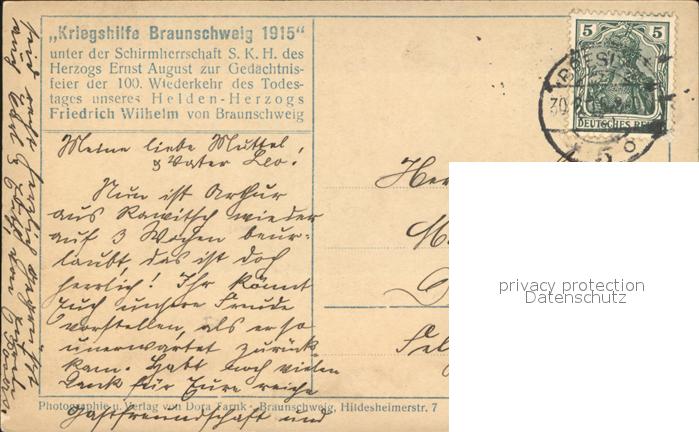 „Kriegshilfe Braunschweig 1915"
unter der Schirmherrschaft S. K. H. des
Herzogs Ernst August zur Gedächtnis-
feier der 100. Wiederkehr des Todes-
tages unseres Helden-Herzogs
Friedrich Wilhelm von Braunschweig
5 5
DEUTSCHES REICH
Meine liebe Muttel
& Vater Leo!
Nun ist Arthur
aus Rawitsch wieder
auf 3 Wochen beur-
laubt das ist doch
herrlich! Ihr könnt
Euch unsere Freude
vorstellen, als er so
unerwartet zurück
kam. Habt noch vielen
Dank für Eure reiche
Gastfreundschaft und
Photographie u. Verlag von Dora Farnk - Braunschweig, Hildesheimerstr. 7
privacy protection
Datenschutz